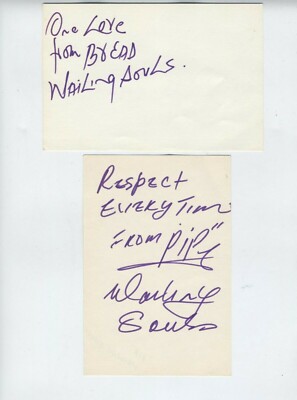 One Love
from BREAD
WAILING SOULS.
RESPECT
EVERYTIME
FROM "PIPE"
Wailing
Souls